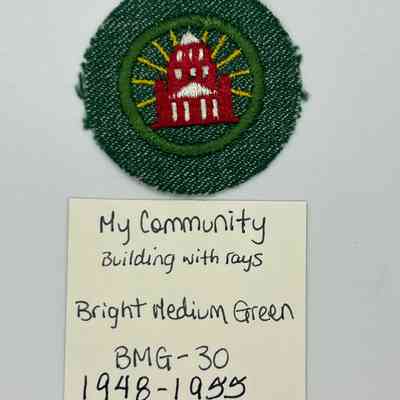 My Community
Building with rays
Bright Medium Green
BMG-30
1948-1955